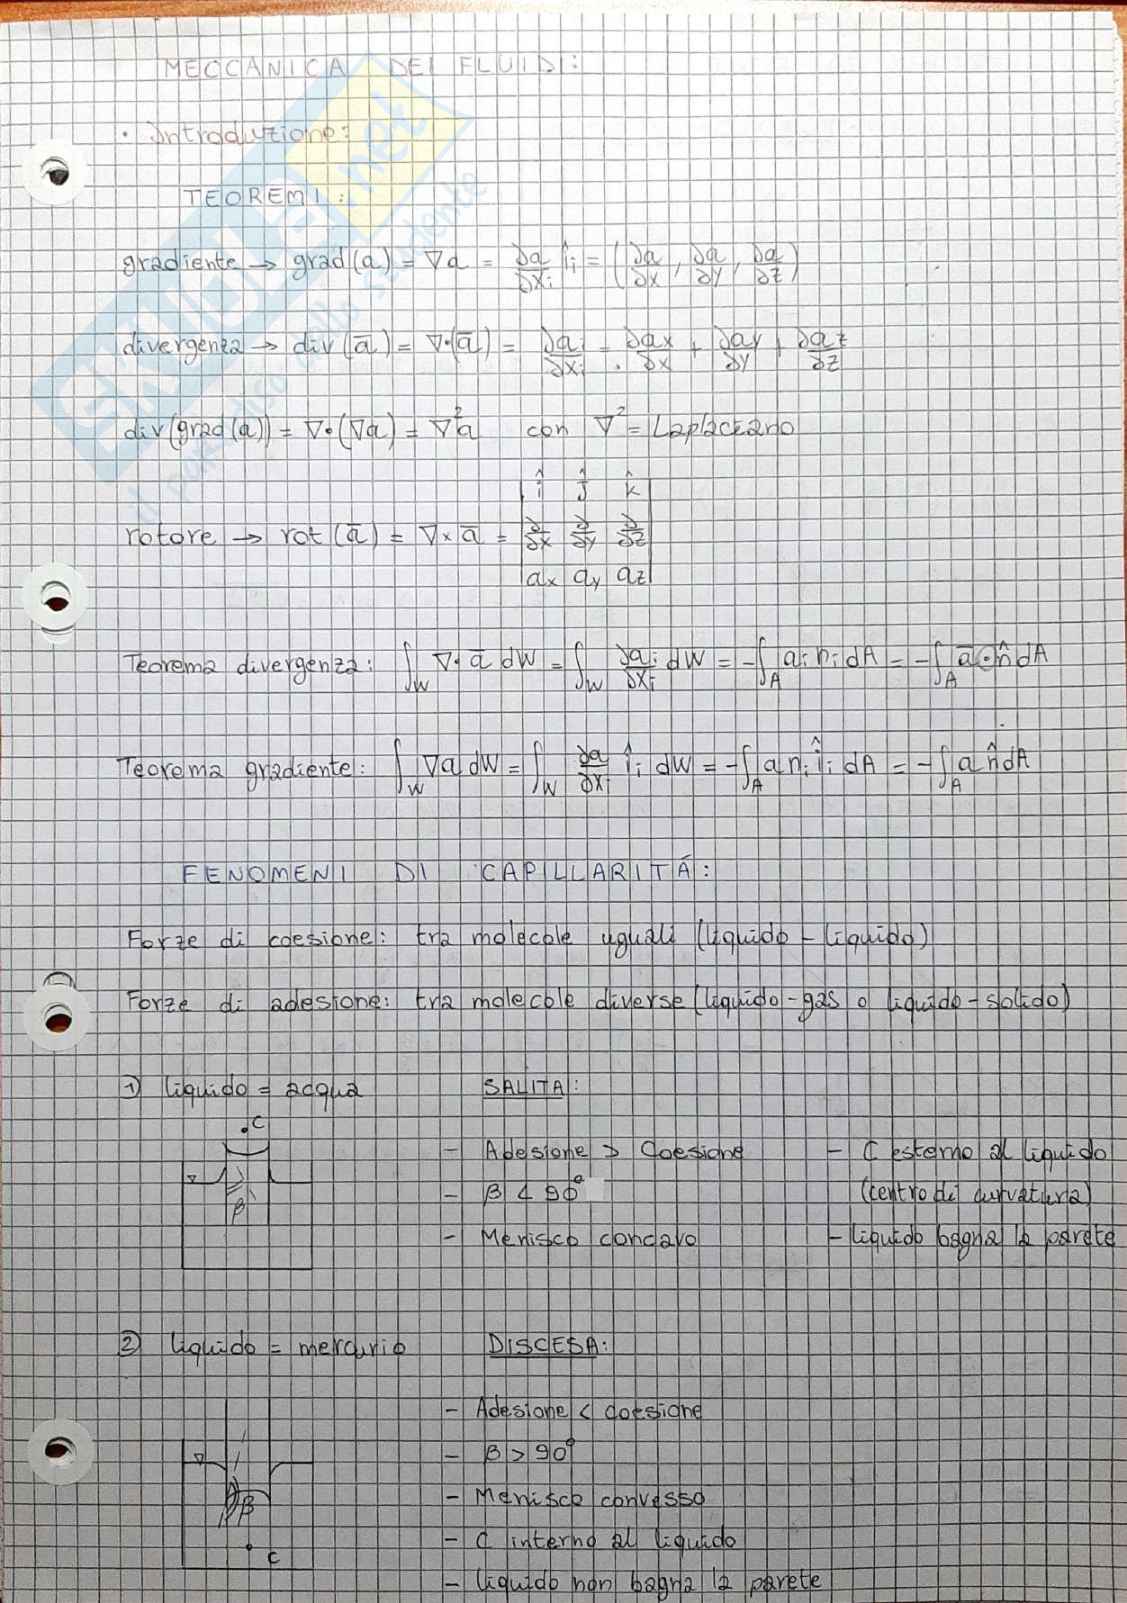 MECCANICA DEI FLUIDI:
• Introduzione:
TEOREMI:
gradiente → grad(a) = ∇a = ∂a/∂xᵢ îᵢ = (∂a/∂x, ∂a/∂y, ∂a/∂z)
divergenza → div(ā) = ∇·(ā) = ∂aᵢ/∂xᵢ = ∂ax/∂x + ∂ay/∂y + ∂az/∂z
div(grad(a)) = ∇·(∇a) = ∇²a con ∇² = Laplaceano
î ĵ k̂
rotore → rot(ā) = ∇×ā = ∂/∂x ∂/∂y ∂/∂z
ax ay az
Teorema divergenza: ∫W ∇·ā dW = ∫W ∂aᵢ/∂xᵢ dW = -∫A aᵢ nᵢ dA = -∫A ā·n̂ dA
Teorema gradiente: ∫W ∇a dW = ∫W ∂a/∂xᵢ îᵢ dW = -∫A a nᵢ îᵢ dA = -∫A a n̂ dA
FENOMENI DI CAPILLARITÁ:
Forze di coesione: tra molecole uguali (liquido - liquido)
Forze di adesione: tra molecole diverse (liquido-gas o liquido-solido)
1) liquido = acqua SALITA:
C
- Adesione > Coesione - C esterno al liquido
β - β < 90° (centro di curvatura)
- Menisco concavo - liquido bagna la parete
2) liquido = mercurio DISCESA:
- Adesione < coesione
- β > 90°
β - Menisco convesso
- C interno al liquido
C
- liquido non bagna la parete
SKUOLA.net
il paradiso dello studente